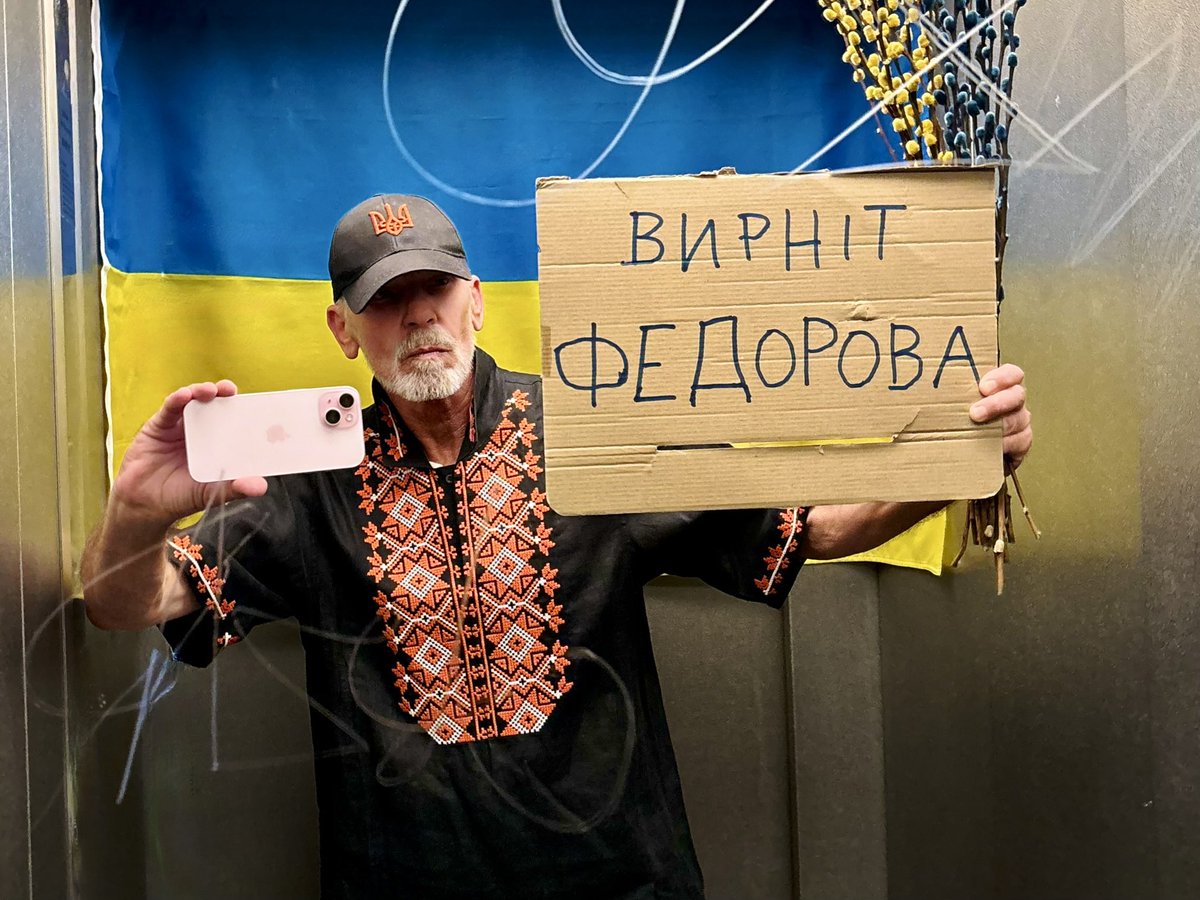 ВИРНІТ
ФЕДОРОВА